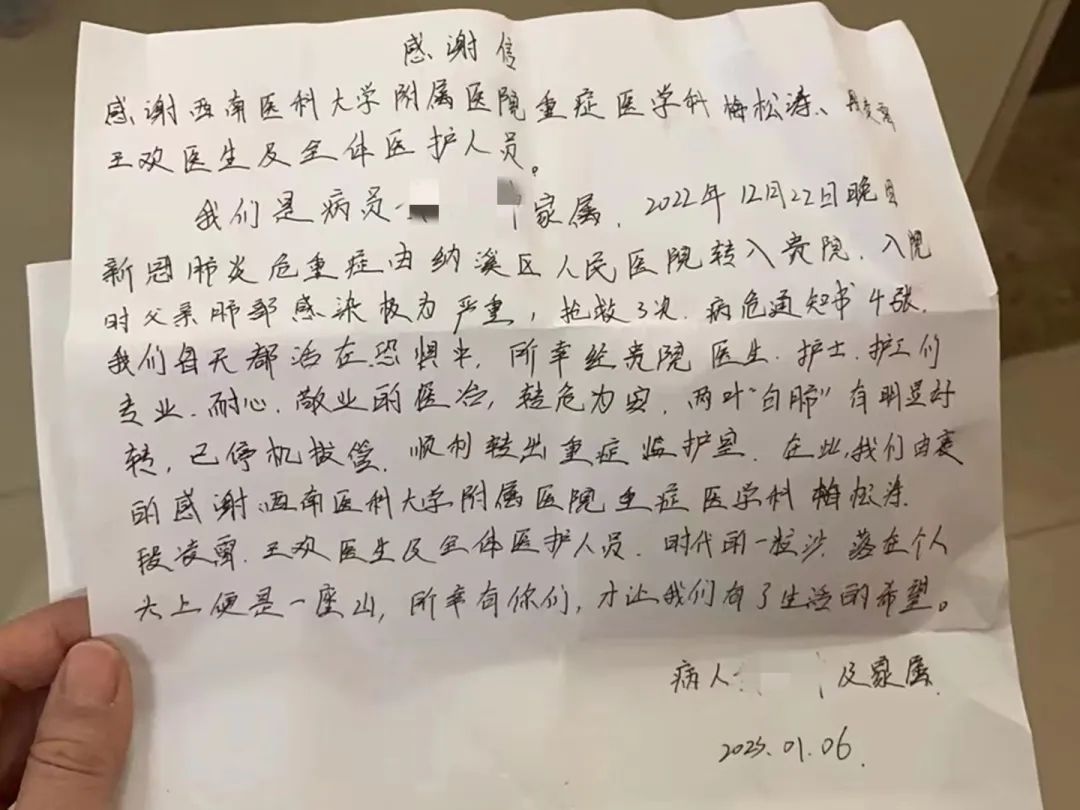 感谢信
感谢西南医科大学附属医院重症医学科梅松涛、段凌霄
王欢医生及全体医护人员。
我们是病员 家属. 2022年12月22日晚因
新冠肺炎危重症由纳溪区人民医院转入贵院. 入院
时父亲肺部感染极为严重, 抢救3次. 病危通知书4张.
我们每天都活在恐惧中. 所幸经贵院医生. 护士. 护工们
专业. 耐心. 敬业的医治, 转危为安. 两叶"白肺"有明显好
转, 已停机拔管. 顺利转出重症监护室. 在此, 我们由衷
的感谢西南医科大学附属医院重症医学科梅松涛.
段凌霄. 王欢医生及全体医护人员. 时代的一粒沙. 落在个人
头上便是一座山, 所幸有你们, 才让我们有了生活的希望。
病人 及家属.
2023.01.06.